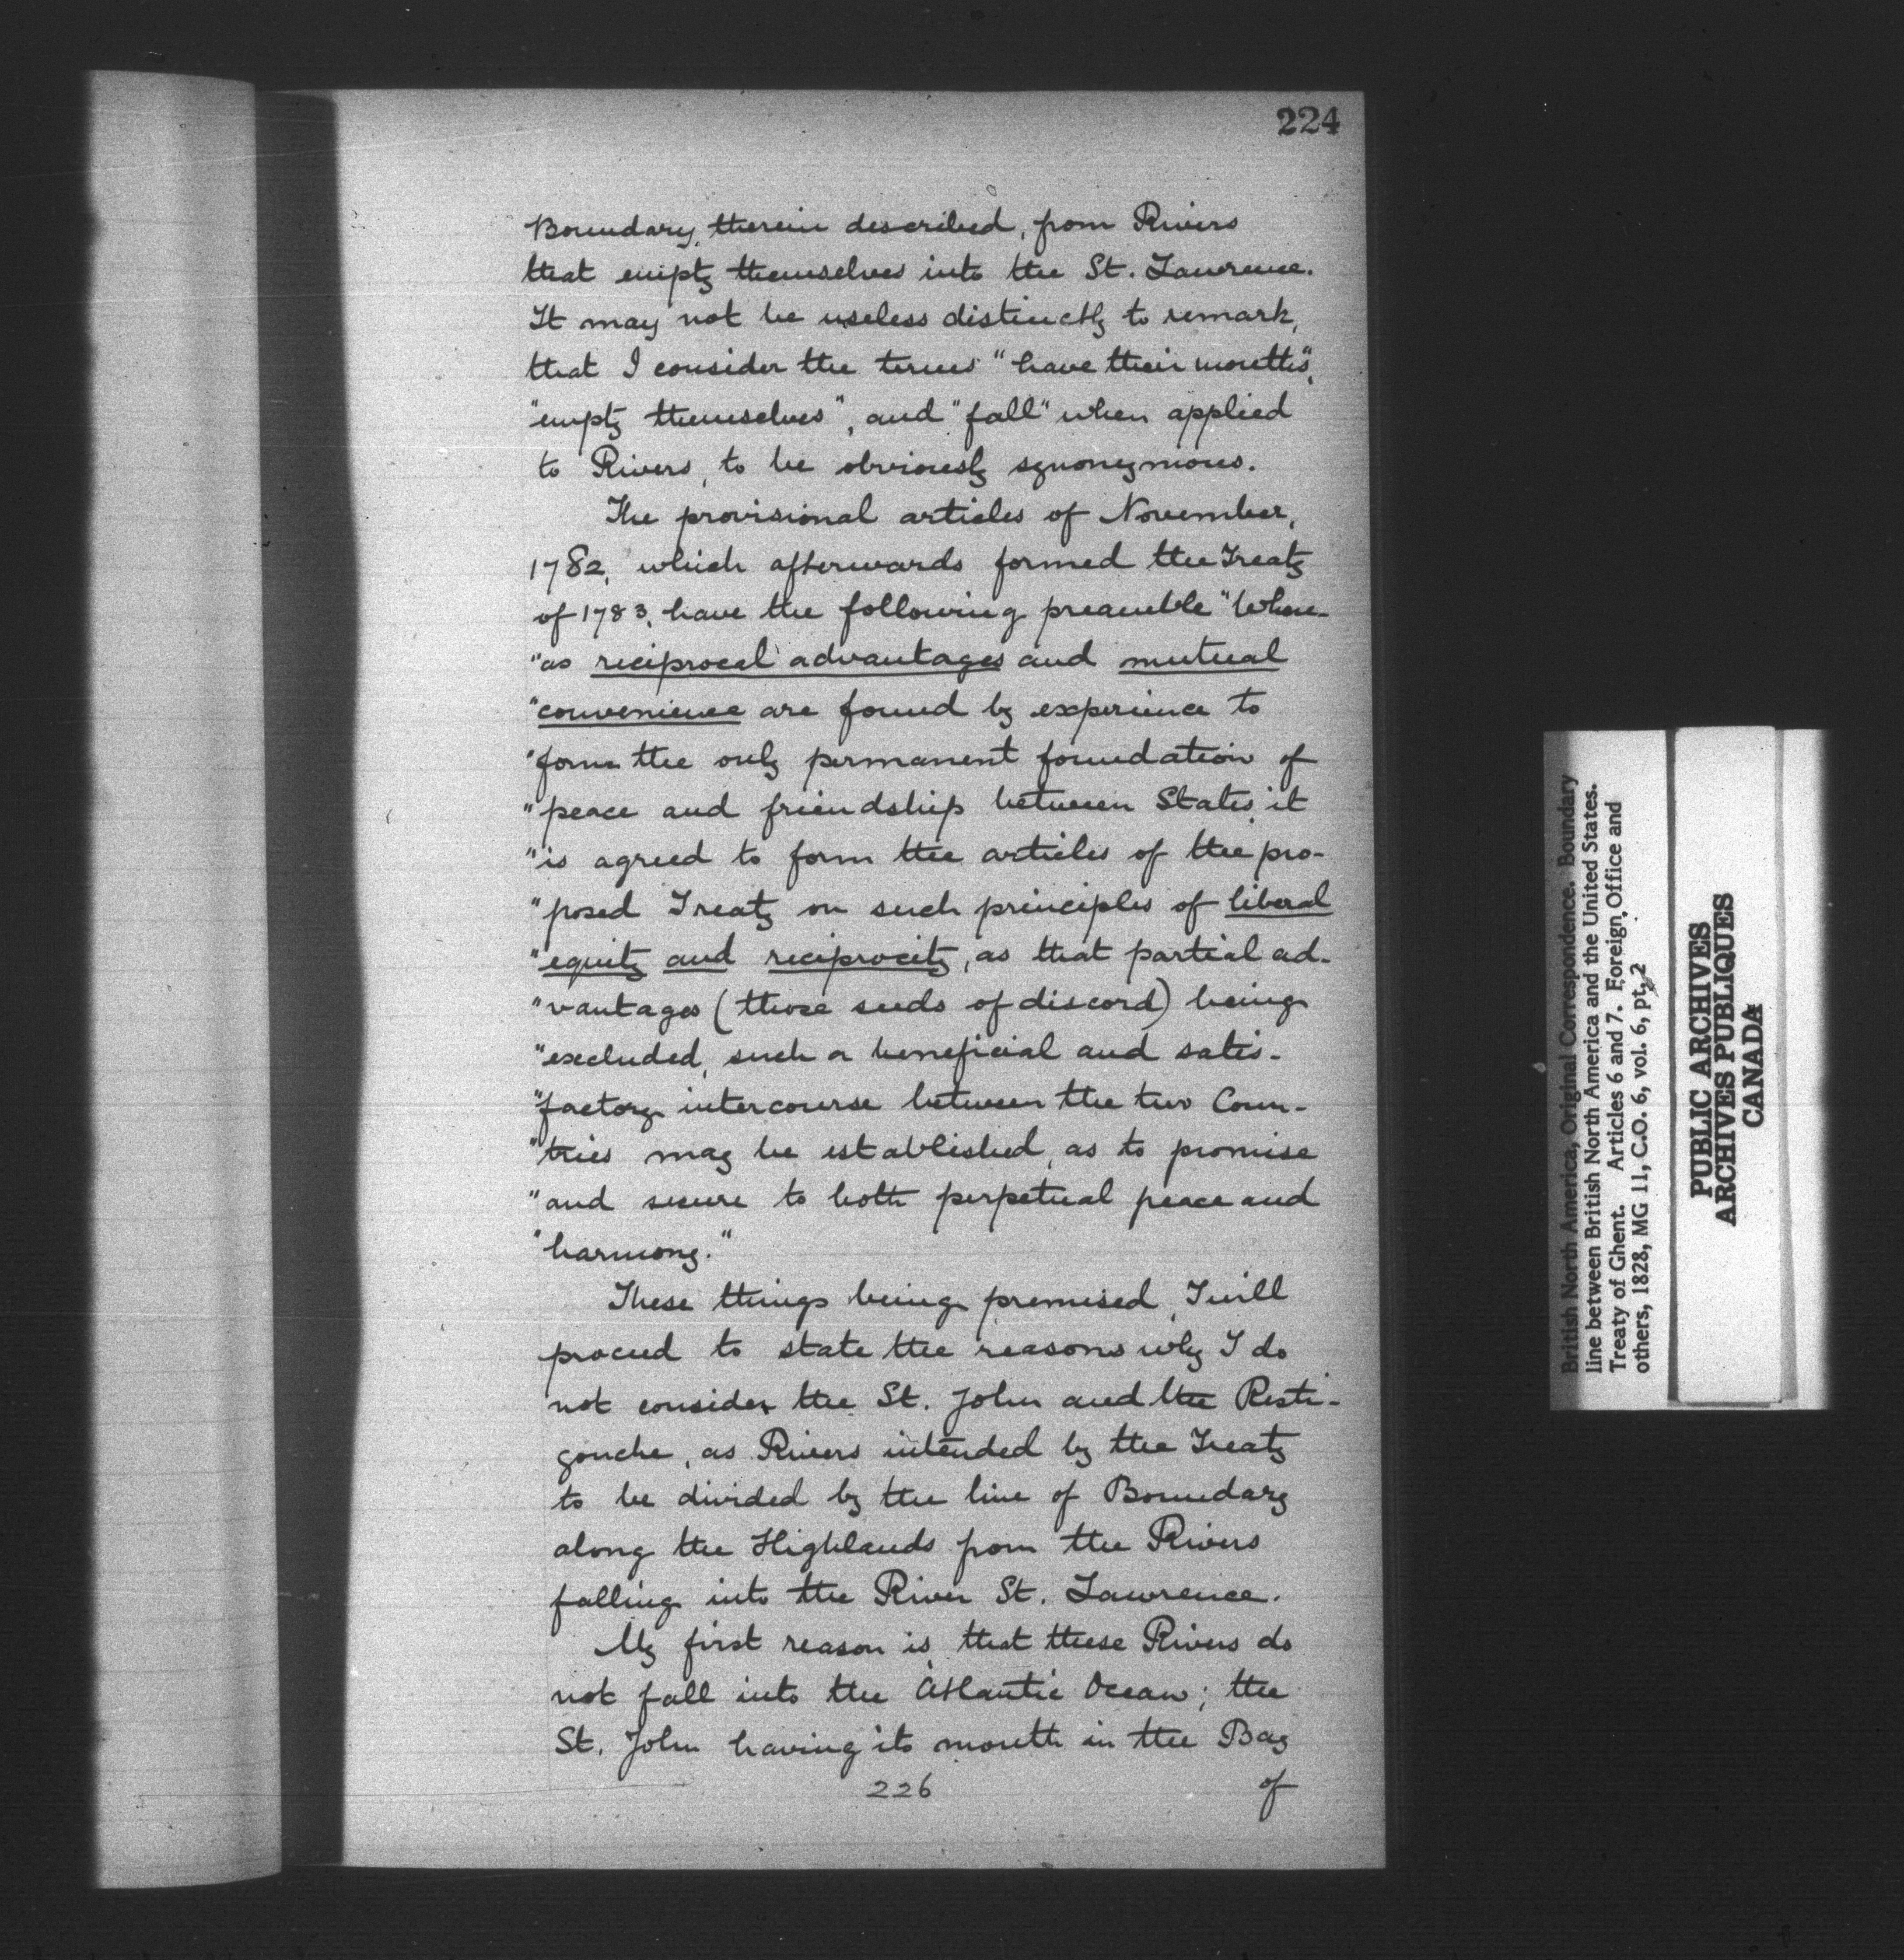 224
Boundary, therein described, from Rivers
that empty themselves into the St. Lawrence.
It may not be useless distinctly to remark,
that I consider the terms "have their mouths",
"empty themselves", and "fall" when applied
to Rivers, to be obviously synonymous.
The provisional articles of November,
1782, which afterwards formed the Treaty
of 1783, have the following preamble "Where-
"as reciprocal advantages and mutual
"convenience are found by experience to
"form the only permanent foundation of
"peace and friendship between States, it
"is agreed to form the articles of the pro-
"posed Treaty on such principles of liberal
"equity and reciprocity, as that partial ad-
"vantages (those seeds of discord) being
"excluded, such a beneficial and satis-
"factory intercourse between the two Coun-
"tries may be established, as to promise
"and secure to both perpetual peace and
"harmony."
These things being premised, I will
proceed to state the reasons why I do
not consider the St. John and the Resti-
gouche, as Rivers intended by the Treaty
to be divided by the line of Boundary
along the Highlands from the Rivers
falling into the River St. Lawrence.
My first reason is, that these Rivers do
not fall into the Atlantic Ocean; the
St. John having its mouth in the Bay
226 of
British North America, Original Correspondence. Boundary
line between British North America and the United States.
Treaty of Ghent. Articles 6 and 7. Foreign Office and
others, 1828, MG 11, C.O. 6, vol. 6, pt. 2
PUBLIC ARCHIVES
ARCHIVES PUBLIQUES
CANADA